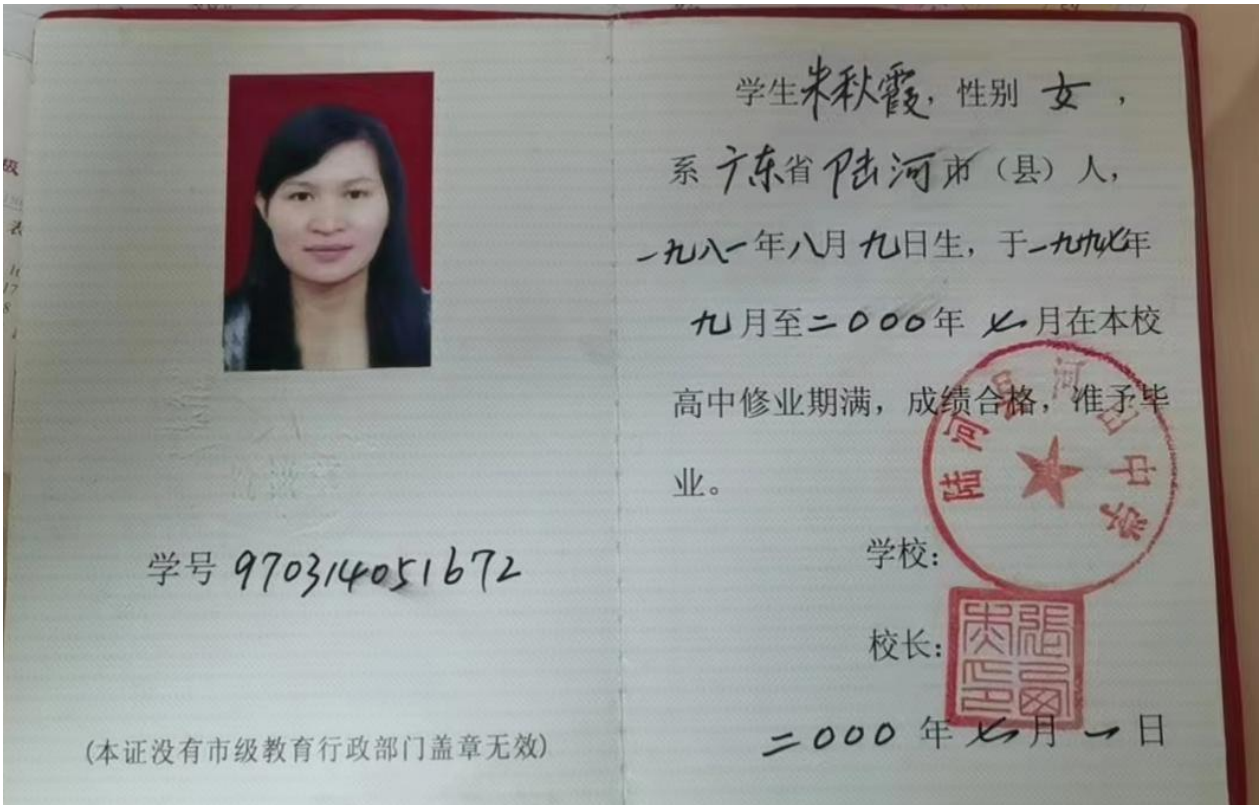 学号 970314051672
(本证没有市级教育行政部门盖章无效)
学生朱秋霞，性别 女 ，
系 广东省陆河市（县）人，
一九八一年八月九日生，于一九九七年
九月至二000年 七月在本校
高中修业期满，成绩合格，准予毕
业。
学校：
陆河县河田中学
校长：
二000 年 七月 一 日